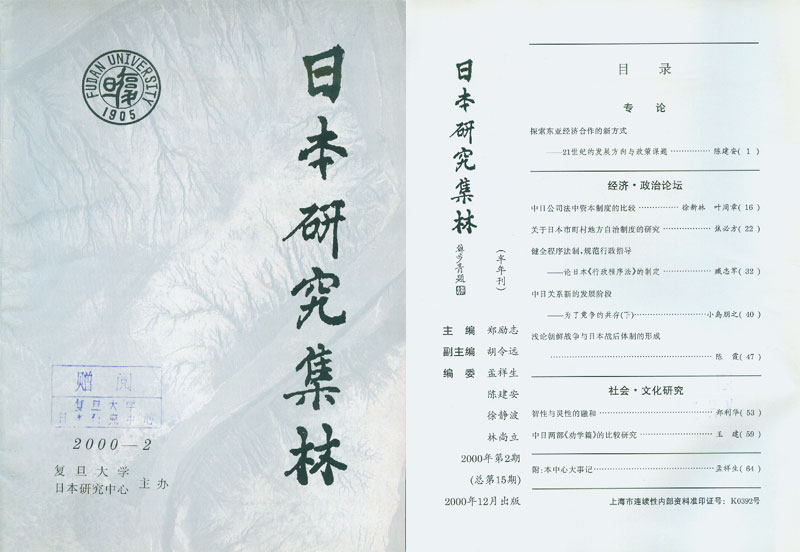 FUDAN UNIVERSITY
1905
日本研究集林
赠阅
复旦大学
日本研究中心
2000—2
复旦大学
日本研究中心 主办
日本研究集林
苏步青题
(半年刊)
主编 郑励志
副主编 胡令远
编委 孟祥生
陈建安
徐静波
林尚立
2000年第2期
(总第15期)
2000年12月出版
目 录
专 论
探索东亚经济合作的新方式
——21世纪的发展方向与政策课题 ………… 陈建安( 1 )
经济·政治论坛
中日公司法中资本制度的比较 ………… 徐新林 叶闻章( 16 )
关于日本市町村地方自治制度的研究 ………… 焦必方( 22 )
健全程序法制,规范行政指导
——论日本《行政程序法》的制定 ………… 臧志军( 32 )
中日关系新的发展阶段
——为了竞争的共存(下) ………… 小岛朋之( 40 )
浅论朝鲜战争与日本战后体制的形成
………… 陈 霞( 47 )
社会·文化研究
智性与灵性的融和 ………… 郑利华( 53 )
中日两部《劝学篇》的比较研究 ………… 王 建( 59 )
附:本中心大事记 ………… 孟祥生( 64 )
上海市连续性内部资料准印证号: K0392号